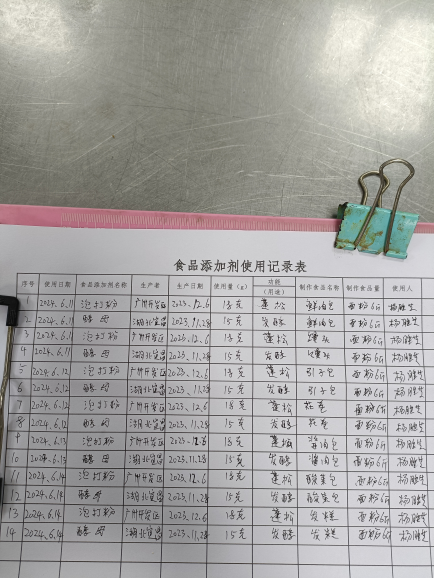 食品添加剂使用记录表
序号 使用日期 食品添加剂名称 生产者 生产日期 使用量（g） 功能（用途） 制作食品名称 制作食品量 使用人
1 2024.6.11 泡打粉 广州开发区 2023.12.6 18克 蓬松 鲜肉包 面粉6斤 杨胜生
2 2024.6.11 酵母 湖北宜昌 2023.11.28 15克 发酵 鲜肉包 面粉6斤 杨胜生
3 2024.6.11 泡打粉 广州开发区 2023.12.6 18克 蓬松 馒头 面粉6斤 杨胜生
4 2024.6.11 酵母 湖北宜昌 2023.11.28 15克 发酵 馒头 面粉6斤 杨胜生
5 2024.6.12 泡打粉 广州开发区 2023.12.6 18克 蓬松 引子包 面粉6斤 杨胜生
6 2024.6.12 酵母 湖北宜昌 2023.11.28 15克 发酵 引子包 面粉6斤 杨胜生
7 2024.6.12 泡打粉 广州开发区 2023.12.6 18克 蓬松 花卷 面粉6斤 杨胜生
8 2024.6.12 酵母 湖北宜昌 2023.11.28 15克 发酵 花卷 面粉6斤 杨胜生
9 2024.6.13 泡打粉 广州开发区 2023.12.6 18克 蓬松 酱肉包 面粉6斤 杨胜生
10 2024.6.13 酵母 湖北宜昌 2023.11.28 15克 发酵 酱肉包 面粉6斤 杨胜生
11 2024.6.14 泡打粉 广州开发区 2023.12.6 18克 蓬松 酸菜包 面粉6斤 杨胜生
12 2024.6.14 酵母 湖北宜昌 2023.11.28 15克 发酵 酸菜包 面粉6斤 杨胜生
13 2024.6.14 泡打粉 广州开发区 2023.12.6 18克 蓬松 发糕 面粉6斤 杨胜生
14 2024.6.14 酵母 湖北宜昌 2023.11.28 15克 发酵 发糕 面粉6斤 杨胜生